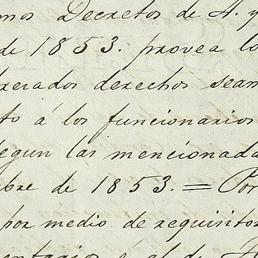 mos Decretos de A. y
de 1853. provea lo
perados derechos sean
to á los funcionarios
segun las mencionada
bre de 1853. = Por
por medio de requisitor
entarios é al de